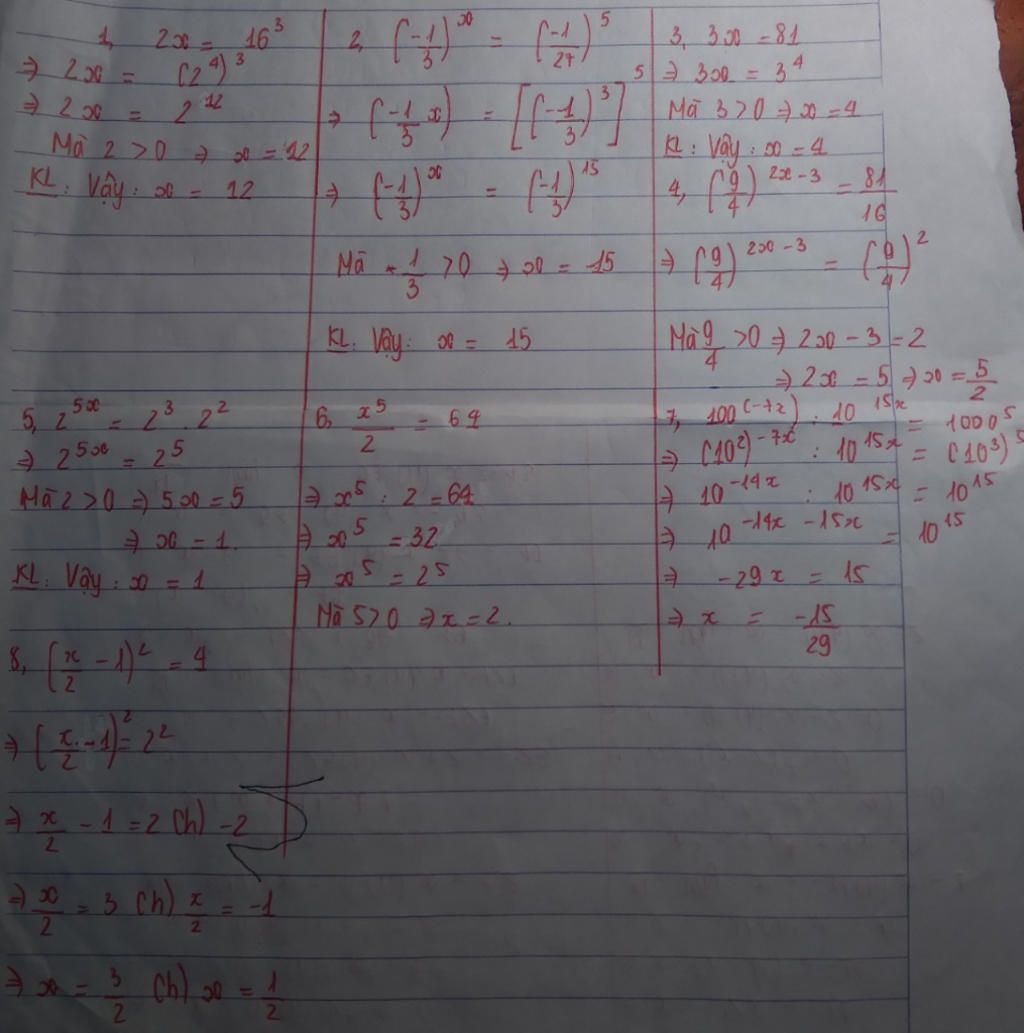 1, 2x = 16³
⇒ 2x = (2⁴)³
⇒ 2x = 2¹²
Mà 2 > 0 ⇒ x = 12
KL: Vậy: x = 12
2, (-1/3)^x = (-1/27)⁵
⇒ (-1/3 x) = [(-1/3)³]⁵
⇒ (-1/3)^x = (-1/3)¹⁵
Mà -1/3 > 0 ⇒ x = 15
KL: Vậy: x = 15
3, 3x = 81
⇒ 3x = 3⁴
Mà 3 > 0 ⇒ x = 4
KL: Vậy: x = 4
4, (9/4)^(2x - 3) = 81/16
⇒ (9/4)^(2x - 3) = (9/4)²
Mà 9/4 > 0 ⇒ 2x - 3 = 2
⇒ 2x = 5 ⇒ x = 5/2
5, 2^(5x) = 2³ . 2²
⇒ 2^(5x) = 2⁵
Mà 2 > 0 ⇒ 5x = 5
⇒ x = 1.
KL: Vậy: x = 1
6, x⁵/2 = 64
⇒ x⁵ : 2 = 64
⇒ x⁵ = 32
⇒ x⁵ = 2⁵
Mà 5 > 0 ⇒ x = 2.
7, 100^(-7x) : 10^(15x) = 1000⁵
⇒ (10²)^(-7x) : 10^(15x) = (10³)⁵
⇒ 10^(-14x) : 10^(15x) = 10¹⁵
⇒ 10^(-14x - 15x) = 10¹⁵
⇒ -29x = 15
⇒ x = -15/29
8, (x/2 - 1)² = 4
⇒ (x/2 - 1)² = 2²
⇒ x/2 - 1 = 2 (h) -2
⇒ x/2 = 3 (h) x/2 = -1
⇒ x = 3/2 (h) x = 1/2